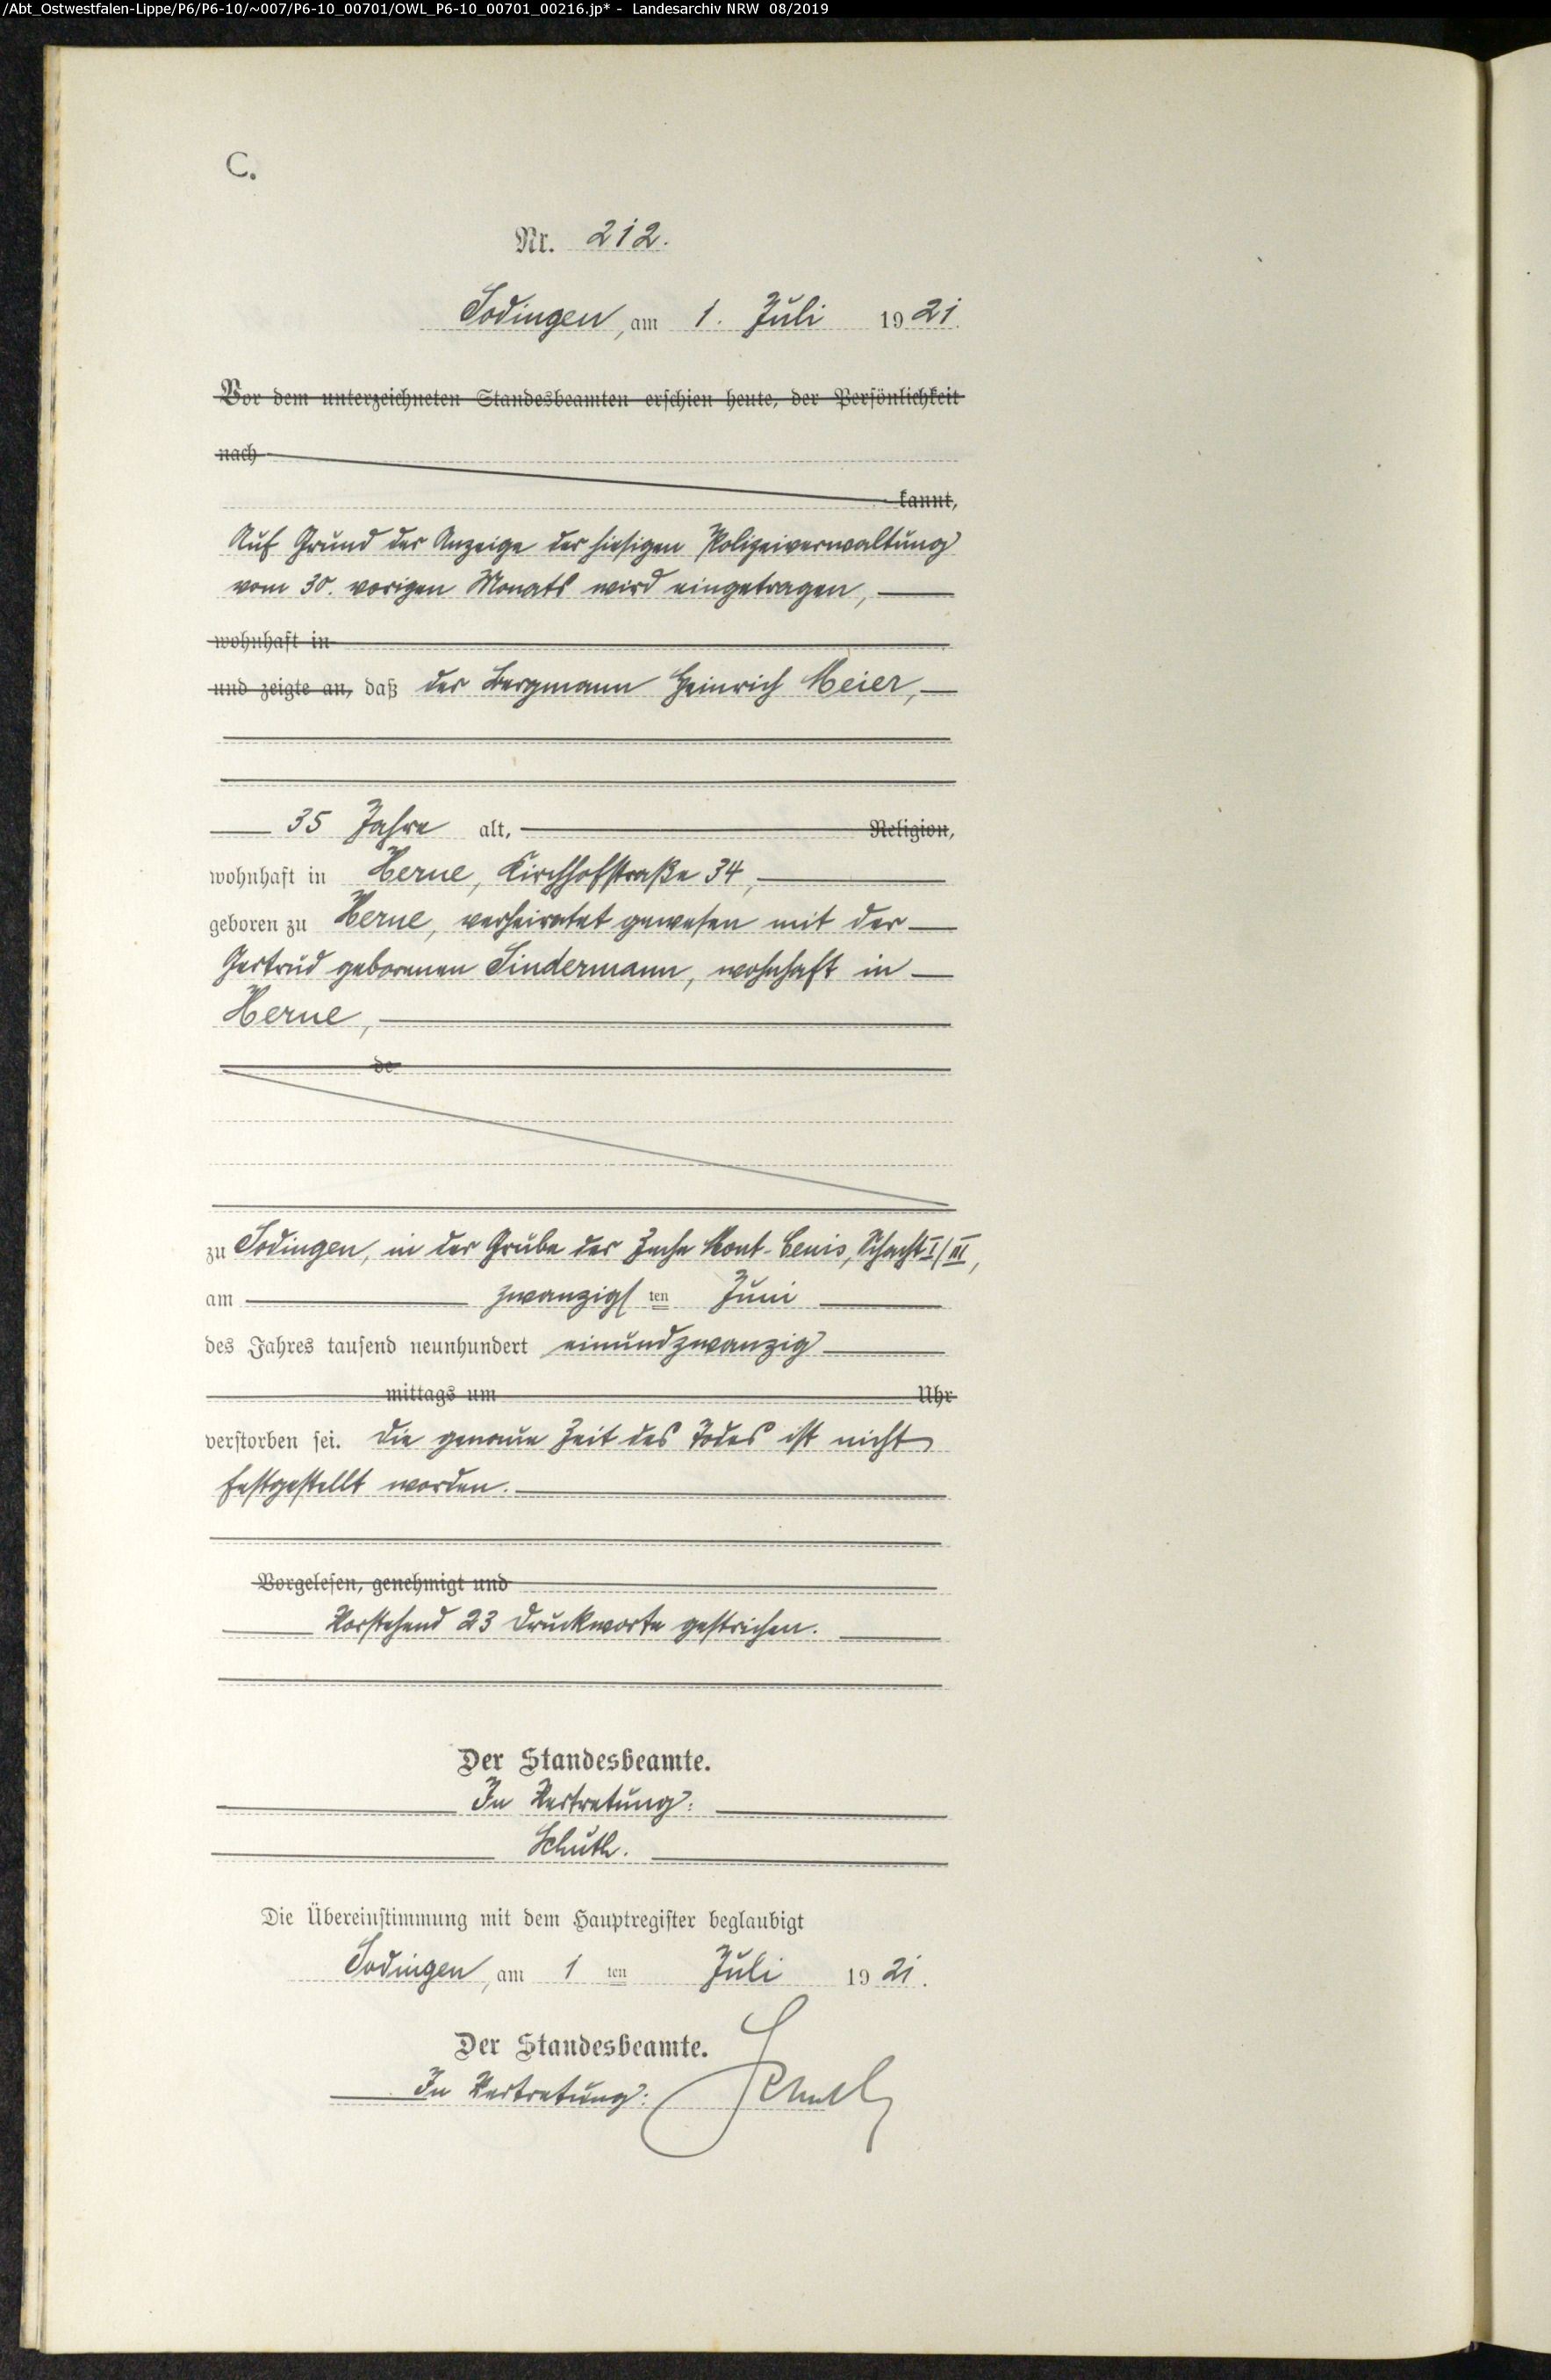 /Abt_Ostwestfalen-Lippe/P6/P6-10/~007/P6-10_00701/OWL_P6-10_00701_00216.jp* - Landesarchiv NRW 08/2019
C.
Nr. 212.
Sodingen, am 1. Juli 1921.
Vor dem unterzeichneten Standesbeamten erschien heute, der Persönlichkeit
nach
kannt,
Auf Grund der Anzeige der hiesigen Polizeiverwaltung
vom 30. vorigen Monats wird eingetragen,
wohnhaft in
und zeigte an, daß der Bergmann Heinrich Meier,
35 Jahre alt, Religion,
wohnhaft in Herne, Kirchhofstraße 34,
geboren zu Herne, verheiratet gewesen mit der
Gertrud geborenen Sindermann, wohnhaft in
Herne,
de
zu Sodingen, in der Grube der Zeche Mont-Cenis, Schacht I/III,
am zwanzigsten Juni
des Jahres tausend neunhundert einundzwanzig
mittags um Uhr
verstorben sei. Die genaue Zeit des Todes ist nicht
festgestellt worden.
Vorgelesen, genehmigt und
Vorstehend 23 Druckworte gestrichen.
Der Standesbeamte.
In Vertretung:
Schuth.
Die Übereinstimmung mit dem Hauptregister beglaubigt
Sodingen, am 1 ten Juli 1921.
Der Standesbeamte.
In Vertretung: Schuth